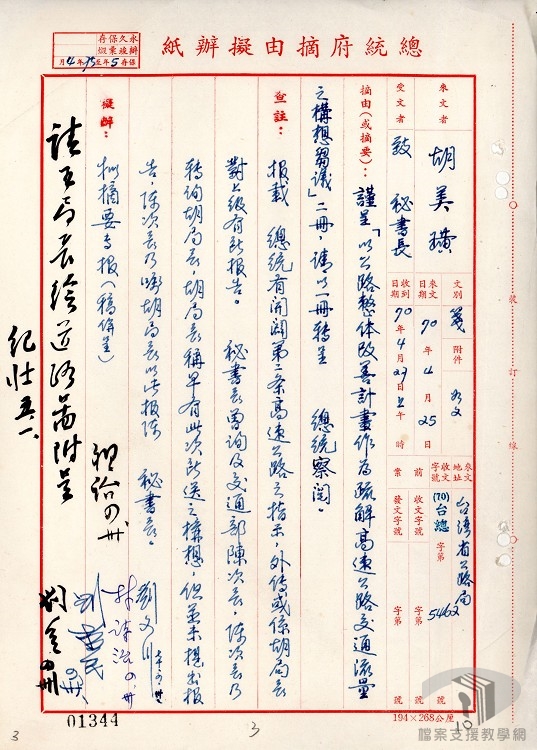 總統府摘由擬辦紙
永久保存
辦竣乘燬
保存5年至75年4月
來文者 胡美璜
受文者 致 秘書長
文別 箋
附件 如文
來文日期 70年4月25日
收到日期 70年4月27日上午 時
來文地址 台灣省公路局
收文字號 (70)台總字第5462號
前案 收文字號 字第 號
發文字號 字第 號
摘由(或摘要):謹呈「以公路整体改善計畫作為疏解高速公路交通流量
之構想芻議」二冊,請以一冊轉呈 總統察閱。
查註:
报載 總統有開闢第二条高速公路之指示,外傳或係胡局長
對上級有所报告。 秘書長曾詢及交通部陳次長,陳次長乃
轉询胡局長,胡局長稱早有此次所送之構想,但並未提出报
告,陳次長乃囑胡局長以此报陈 秘書長。
擬辦:
拟摘要呈报(稿併呈)
請王局長繪道路畧圖附呈
紀壯 五、一
裝
訂
線
01344
3
3
10
194×268公厘
檔案支援教學網